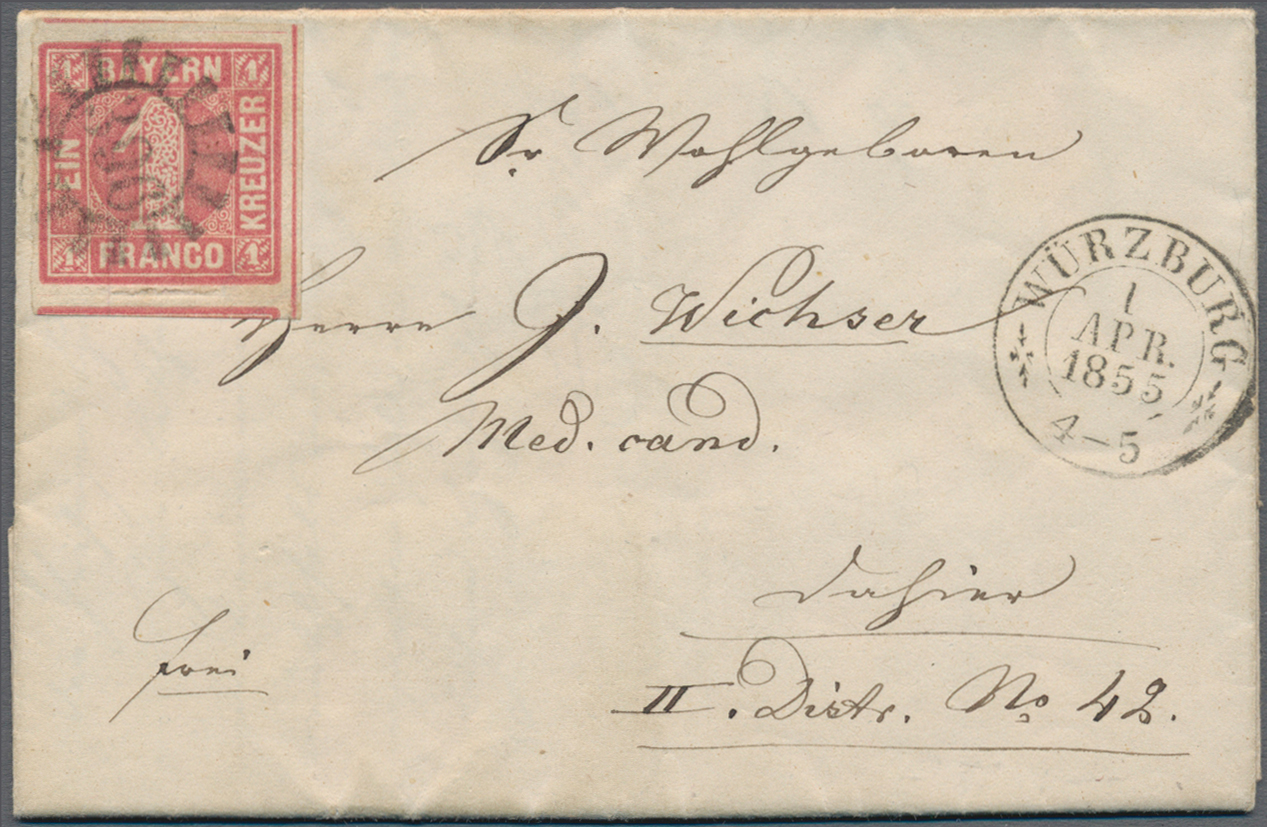 1 BAYERN 1
EIN
KREUZER
1
1 FRANCO 1
Sr Wohlgeboren
Herrn J. Wichser
Med. cand.
WÜRZBURG
1
APR.
1855
4-5
dahier
frei
II. Distr. No 42.